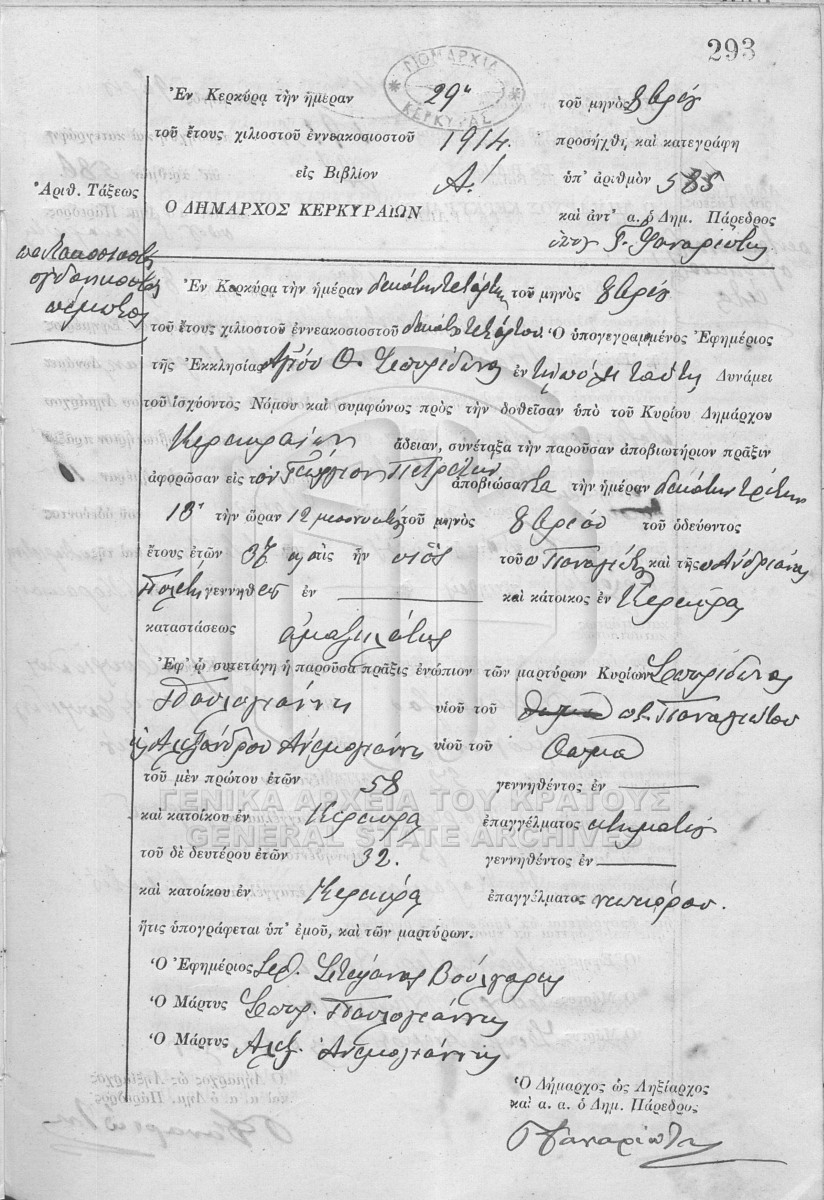 293
ΝΟΜΑΡΧΙΑ
ΚΕΡΚΥΡΑΣ
Ἐν Κερκύρᾳ τὴν ἡμέραν 29η τοῦ μηνὸς 8βρίου
τοῦ ἔτους χιλιοστοῦ ἐννεακοσιοστοῦ 1914, προσήχθη καὶ κατεγράφη
εἰς Βιβλίον Α! ὑπ' ἀριθμὸν 585
Ἀριθ. Τάξεως
Ο ΔΗΜΑΡΧΟΣ ΚΕΡΚΥΡΑΙΩΝ καὶ ἀντ' α. ὁ Δημ. Πάρεδρος
Γ. Φαναριώτης
πεντακοσιοστὸς
ὀγδοηκοστὸς
πέμπτος
Ἐν Κερκύρᾳ τὴν ἡμέραν δεκάτην τετάρτην τοῦ μηνὸς 8βρίου
τοῦ ἔτους χιλιοστοῦ ἐννεακοσιοστοῦ δεκάτου τετάρτου Ὁ ὑπογεγραμμένος Ἐφημέριος
τῆς Ἐκκλησίας Ἁγίου Σπυρίδωνος ἐν τῇ πόλει ταύτῃ Δυνάμει
τοῦ ἰσχύοντος Νόμου καὶ συμφώνως πρὸς τὴν δοθεῖσαν ὑπὸ τοῦ Κυρίου Δημάρχου
Κερκυραίων ἄδειαν, συνέταξα τὴν παροῦσαν ἀποβιωτήριον πρᾶξιν
ἀφορῶσαν εἰς τὸν Γεώργιον Πετρέτην ἀποβιώσαντα τὴν ἡμέραν δεκάτην τρίτην
13η τὴν ὥραν 12 μεσονυκτίου τοῦ μηνὸς 8βρίου τοῦ ὁδεύοντος
ἔτους ἐτῶν 37 ὅστις ἦν υἱὸς τοῦ Παναγιώτη καὶ τῆς Ἀνδριάνας
γεννηθεὶς ἐν καὶ κάτοικος ἐν Κερκύρᾳ
καταστάσεως ἁμαξηλάτης
Ἐφ' ᾧ συνετάγη ἡ παροῦσα πρᾶξις ἐνώπιον τῶν μαρτύρων Κυρίων Σπυρίδωνος
Παυλογιάννη υἱοῦ τοῦ Παναγιώτου
Ἀλεξάνδρου Ἀνεμογιάννη υἱοῦ τοῦ Θωμᾶ
τοῦ μὲν πρώτου ἐτῶν 58 γεννηθέντος ἐν
καὶ κατοίκου ἐν Κερκύρᾳ ἐπαγγέλματος κτηματίου
ΓΕΝΙΚΑ ΑΡΧΕΙΑ ΤΟΥ ΚΡΑΤΟΥΣ
GENERAL STATE ARCHIVES
τοῦ δὲ δευτέρου ἐτῶν 32. γεννηθέντος ἐν
καὶ κατοίκου ἐν Κερκύρᾳ ἐπαγγέλματος νεωκόρου.
ἥτις ὑπογράφεται ὑπ' ἐμοῦ, καὶ τῶν μαρτύρων.
Ὁ Ἐφημέριος Στέφανος Βούλγαρης
Ὁ Μάρτυς Σπυρ. Παυλογιάννης
Ὁ Μάρτυς Ἀλεξ. Ἀνεμογιάννης
Ὁ Δήμαρχος ὡς Ληξίαρχος
καὶ α. α. ὁ Δημ. Πάρεδρος
Γ Φαναριώτης